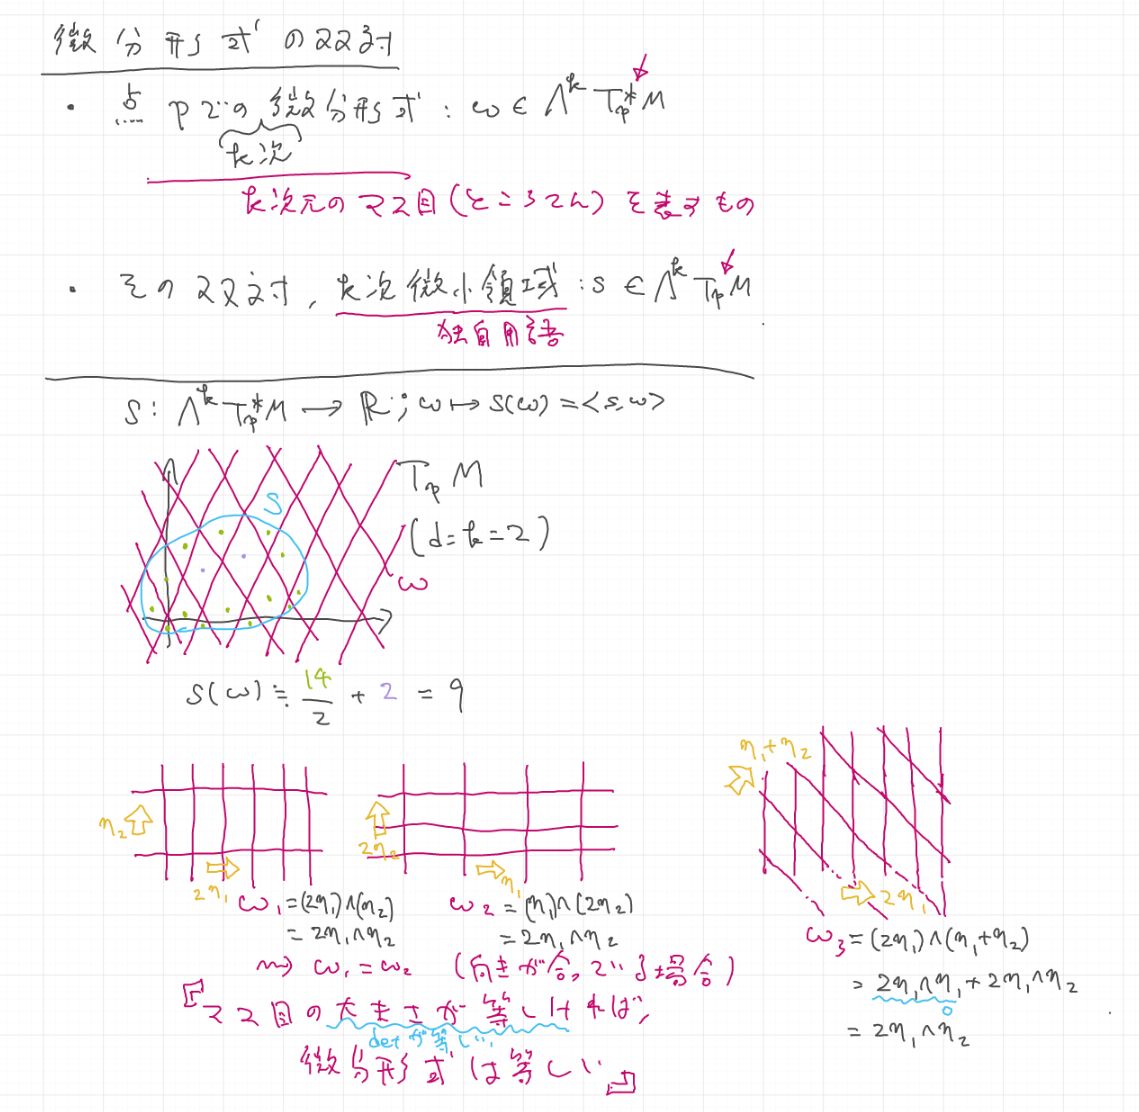 微分形式の双対
・点pでの微分形式 : ω ∈ Λ^k T_p^*M
k次
k次元のマス目(ところてん)を表すもの
・その双対, k次微小領域 : s ∈ Λ^k T_pM
独自用語
S : Λ^k T_p^*M → ℝ ; ω ↦ s(ω) = <s,ω>
S
T_pM
(d=k=2)
ω
S(ω) ≒ 14/2 + 2 = 9
η_2
2η_1
ω_1 = (2η_1)∧(η_2)
= 2η_1∧η_2
2η_2
η_1
ω_2 = (η_1)∧(2η_2)
= 2η_1∧η_2
⇝ ω_1 = ω_2 (向きが合っている場合)
『マス目の大きさが等しければ,
detが等しい
微分形式は等しい』
η_1+η_2
2η_1
ω_3 = (2η_1)∧(η_1+η_2)
= 2η_1∧η_1 + 2η_1∧η_2
0
= 2η_1∧η_2